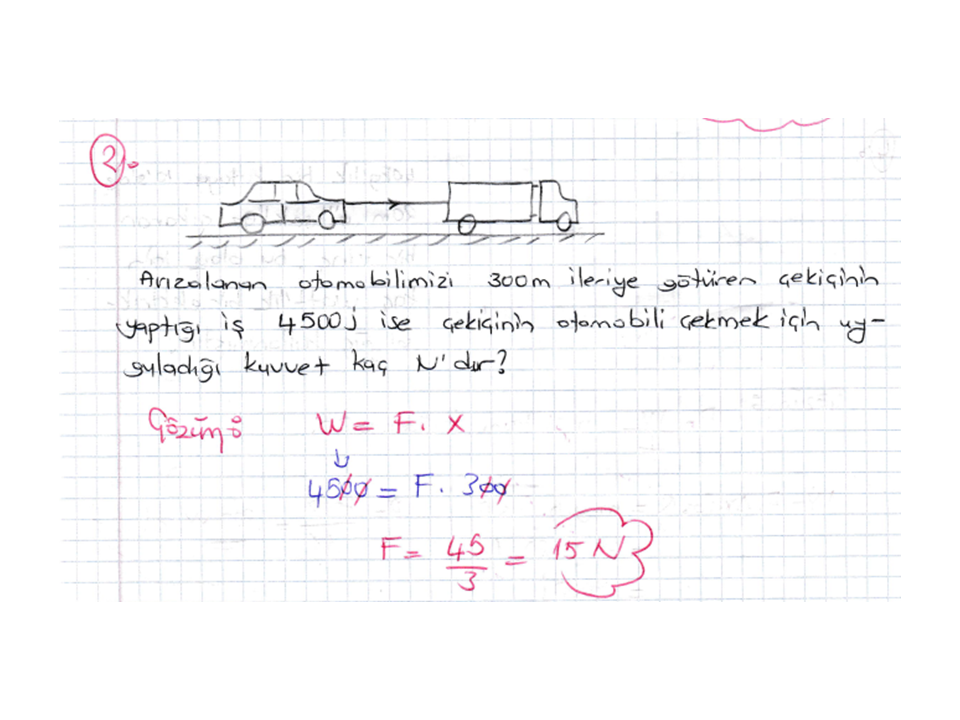 3.
Arızalanan otomobilimizi 300m ileriye götüren çekicinin
yaptığı iş 4500j ise çekicinin otomobili çekmek için uy-
guladığı kuvvet kaç N'dır?
Çözüm:
W = F. X
↓
4500 = F. 300
F = 45/3 = 15 N